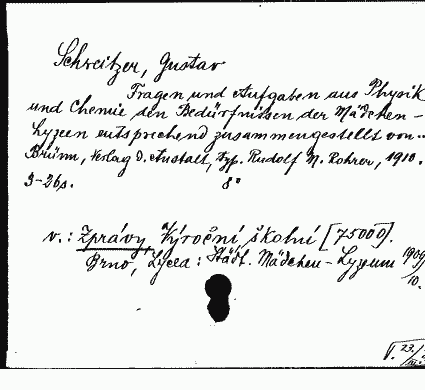 Schreitzer, Gustav
Fragen und Aufgaben aus Physik
und Chemie den Bedürfnissen der Mädchen-
Lyzeen entsprechend zusammengestellt von...
Brünn, Verlag d. Anstalt, Typ. Rudolf M. Rohrer, 1910.
3-26s. 8°
v.: Zprávy, Výroční školní [75000].
Brno, Lycea: Städt. Mädchen-Lyzeum 1909/10.